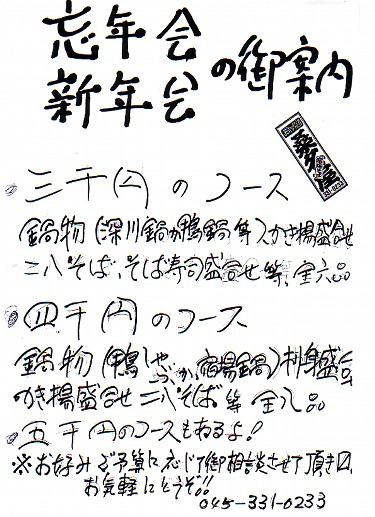 忘年会
新年会
の御案内
三千円のコース
鍋物(深川鍋か鴨鍋等)かき揚盛合せ
二八そば、そば寿司盛合せ等、全六品
四千円のコース
鍋物(鴨しゃぶか、宿場鍋)刺身盛合
かき揚盛合せ二八そば等 全八品
五千円のコースもあるよ!
※お好み、ご予算に応じて御相談させて頂き〼
お気軽にどうぞ!!
045-331-0233